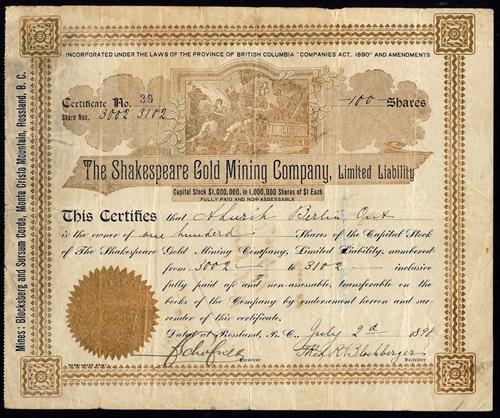 INCORPORATED UNDER THE LAWS OF THE PROVINCE OF BRITISH COLUMBIA "COMPANIES ACT, 1890" AND AMENDMENTS
Certificate No. 39
100 Shares
Share Nos. 3002 3102
The Shakespeare Gold Mining Company, Limited Liability
Capital Stock $1,000,000, in 1,000,000 Shares of $1 Each
FULLY PAID AND NON-ASSESSABLE
This Certifies that Berlin Ont
is the owner of one hundred Shares of the Capital Stock
of The Shakespeare Gold Mining Company, Limited Liability, numbered
from 3002 to 3102 inclusive
fully paid up and non-assessable, transferable on the
books of the Company by endorsement hereon and sur-
render of this certificate.
Dated at Rossland, B. C., July 2d 1898
Schofield
President
Secretary
Mines: Blocksberg and Sursum Corda, Monte Cristo Mountain, Rossland, B. C.